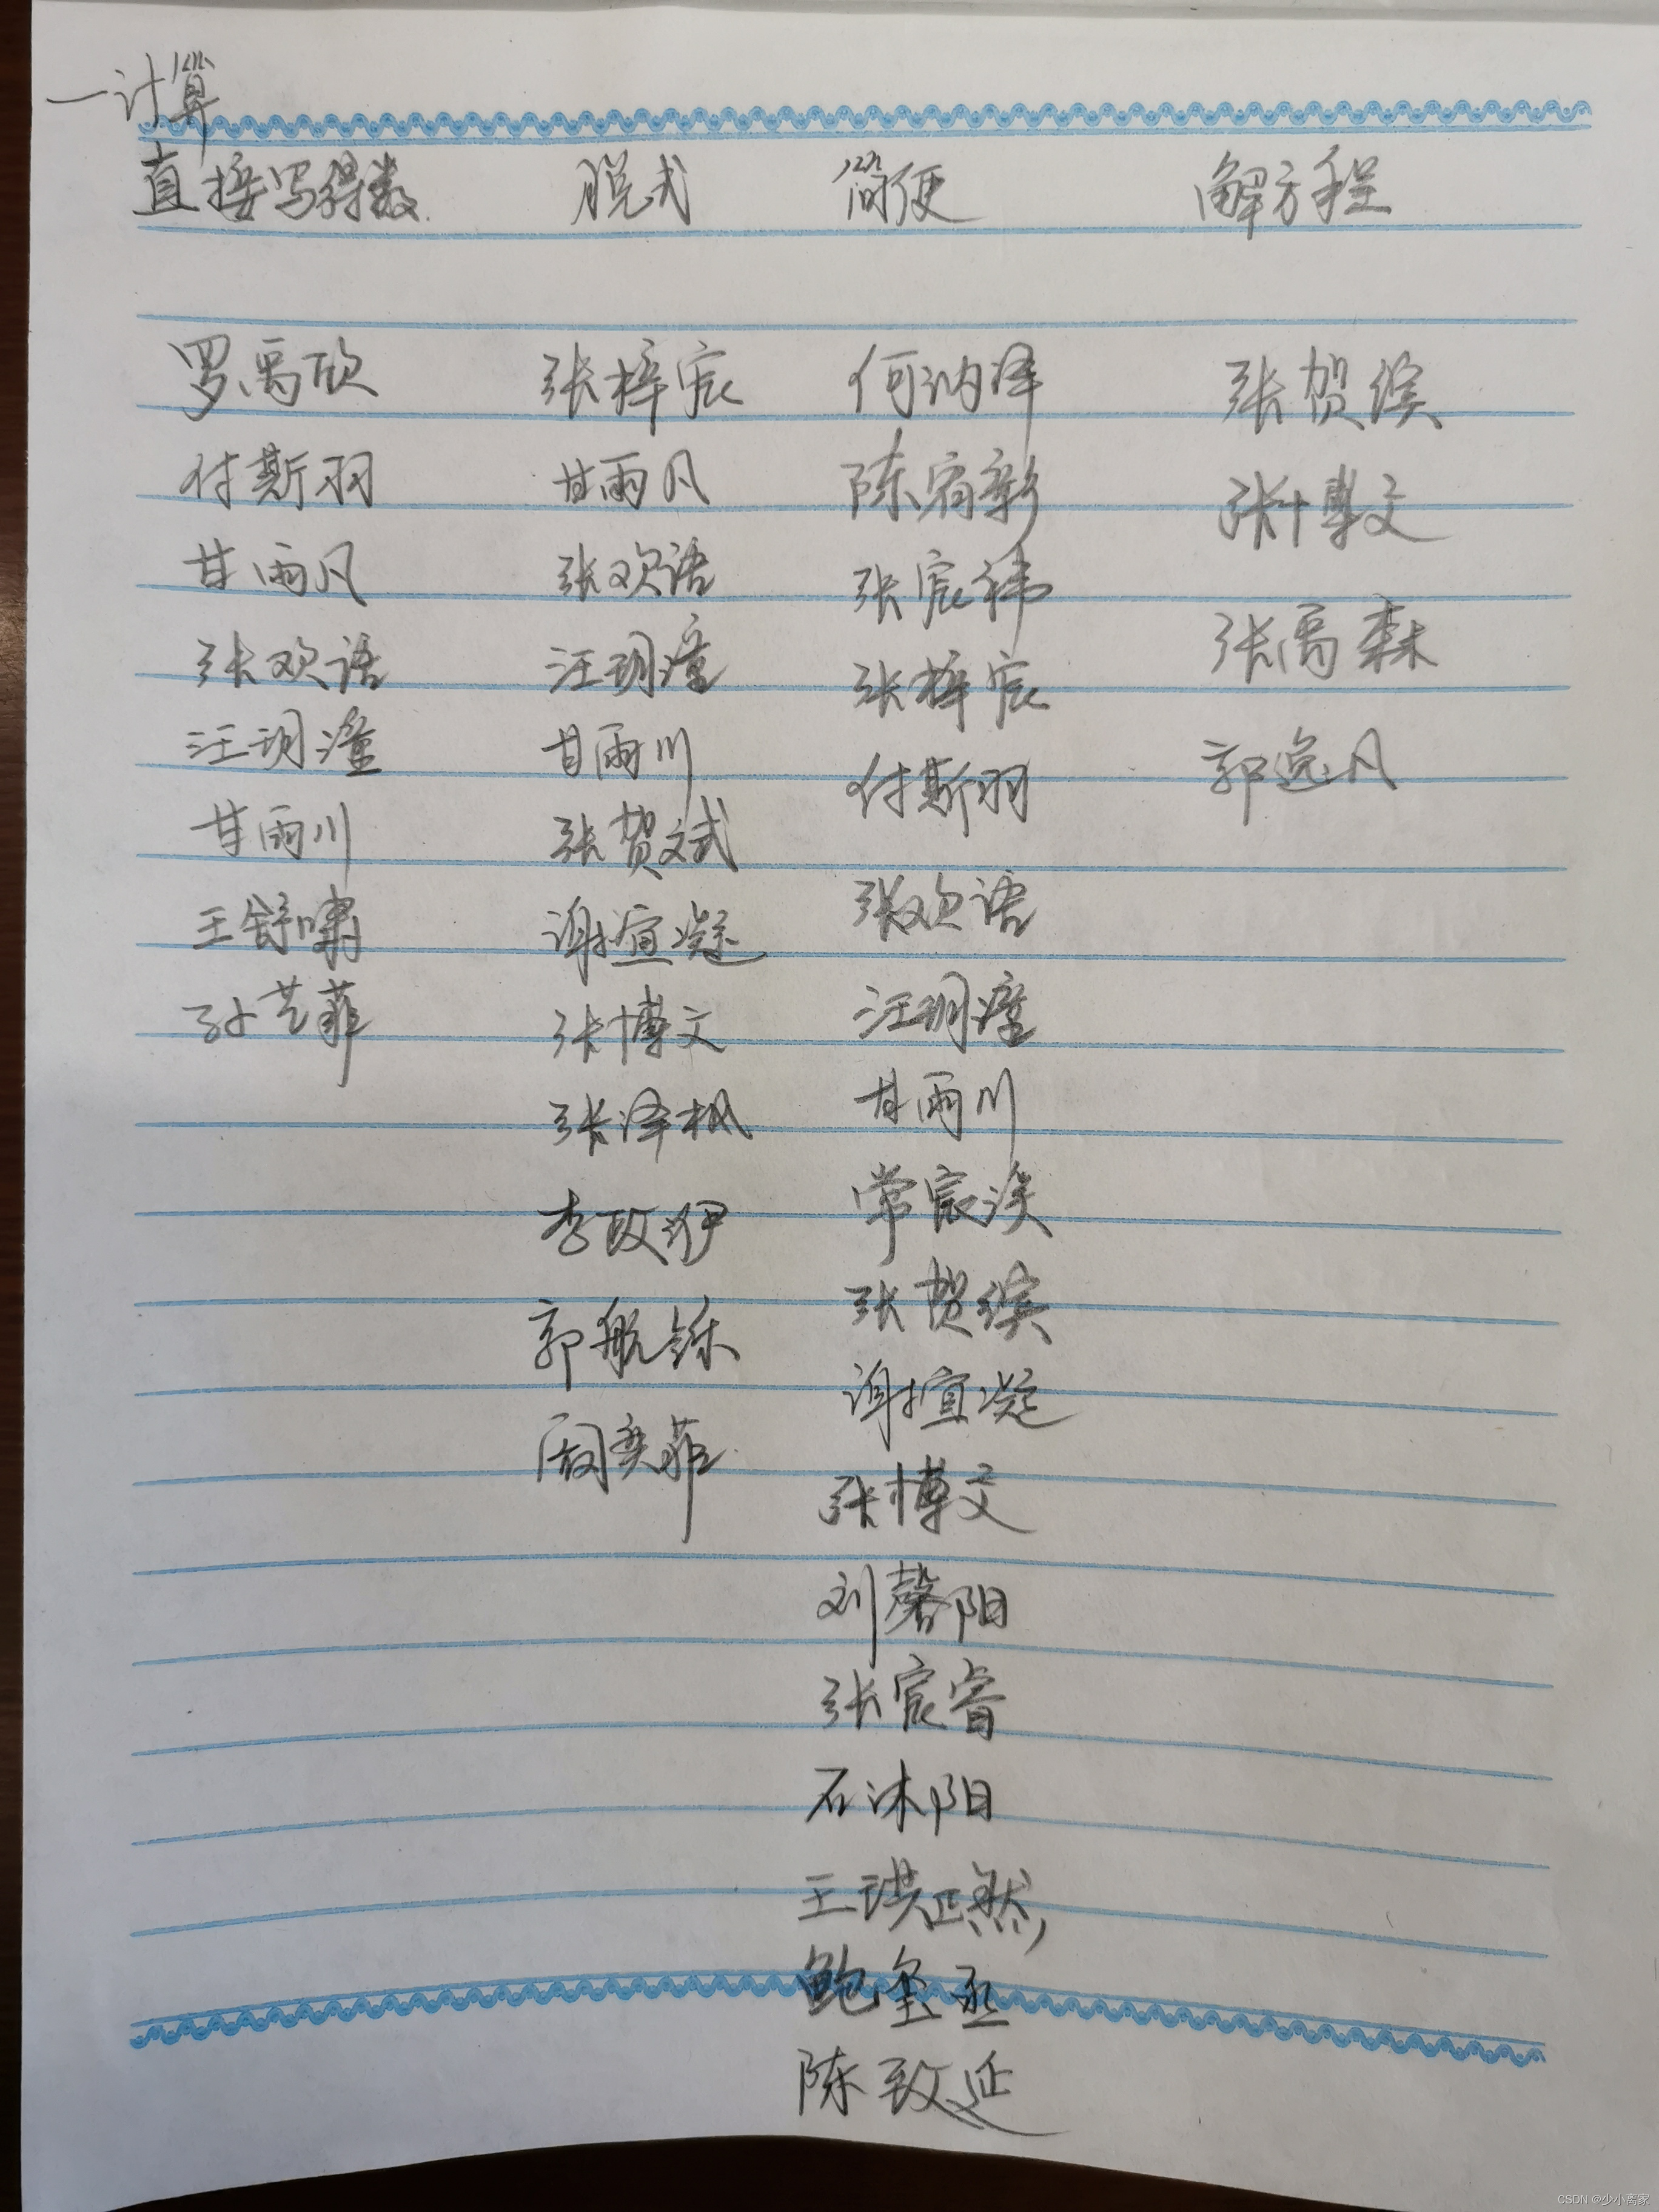 一计算
直接写得数 脱式 简便 解方程
罗禹欣 张梓宸 何汭泽 张贺缤
付斯羽 甘雨凡 陈宥彰 张博文
甘雨凡 张欢语 张宸祎 张禹森
张欢语 汪玥潼 张梓宸 郭逸凡
汪玥潼 甘雨川 付斯羽
甘雨川 张贺斌 张欢语
王舒啸 谢宣凝 汪玥潼
孙艺菲 张博文 甘雨川
张泽枫 常宸溪
李政伊 张贺缤
郭航铄 谢宣凝
周奕菲 张博文
刘馨阳
张宸睿
石沐阳
王琪然
鲍玺丞
陈致延
CSDN @少小离家